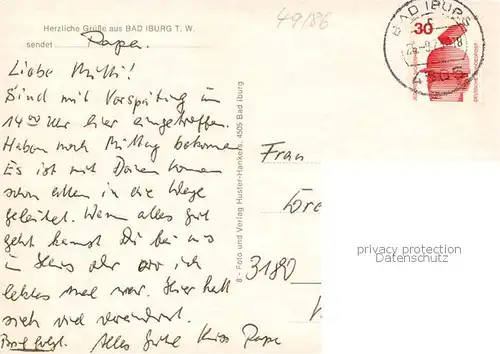 Herzliche Grüße aus BAD IBURG T. W.
sendet Papa.
49/86
BAD IBURG
30
4505
Liebe Mutti!
Sind mit Verspätung um
14 00 Uhr hier eingetroffen.
Haben noch Mittag bekommen
Es ist mit
schon alles in die Wege
geleitet. Wenn alles gut
geht kannst Du bei uns
im Haus oder wo ich
letztes mal war. Hier hat
sich viel verändert.
Brief folgt. Alles Gute Kuss Papa
8 - Foto und Verlag Huster-Hankers, 4505 Bad Iburg
Frau
3180
privacy protection
Datenschutz